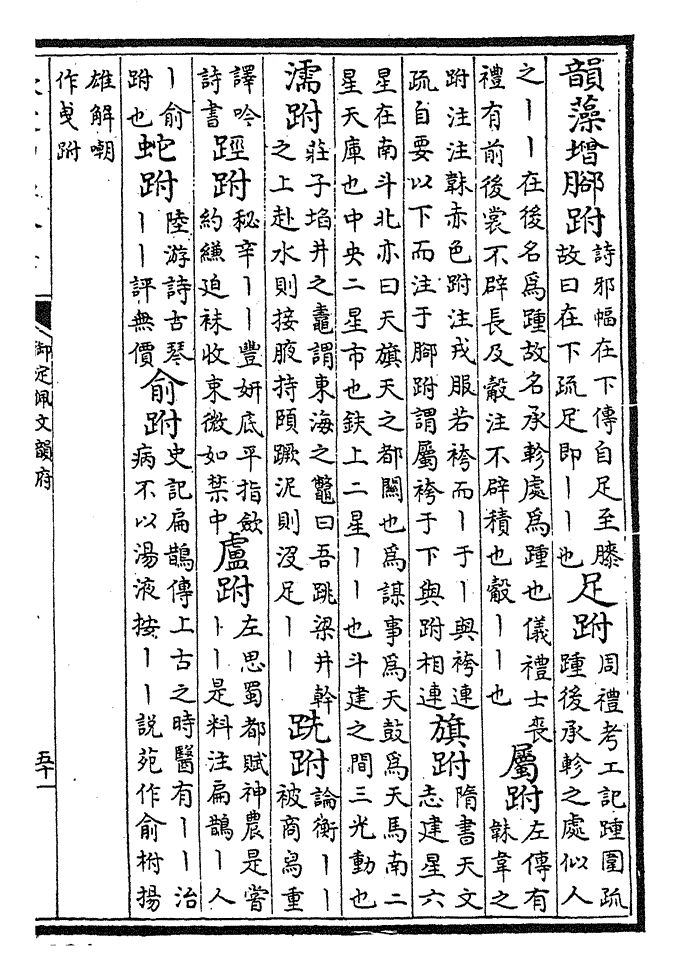 韻藻增腳跗詩邪幅在下傳自足至膝故曰在下疏足即丨丨也足跗周禮考工記踵圍疏踵後承軫之處似人
之丨丨在後名為踵故名承軫處為踵也儀禮士喪禮有前後裳不辟長及轂注不辟積也轂丨丨也屬跗左傳有韎韋之
跗注注韎赤色跗注戎服若袴而丨于丨與袴連疏自要以下而注于腳跗謂屬袴于下與跗相連旗跗隋書天文志建星六
星在南斗北亦曰天旗天之都關也為謀事為天鼓為天馬南二星天庫也中央二星市也鈇上二星丨丨也斗建之間三光動也
濡跗莊子埳井之鼃謂東海之鼈曰吾跳梁井幹之上赴水則接腋持頤蹶泥則没足丨丨跣跗論衡丨丨被商舄重
譯吟詩書踁跗秘辛丨丨豐妍底平指歛約縑迫袜收束微如禁中盧跗左思蜀都賦神農是嘗丨丨是料注扁鵲丨人
丨俞跗也蛇跗陸游詩古琴丨丨評無價俞跗史記扁鵲傳上古之時醫有丨丨治病不以湯液按丨丨說苑作俞柎揚
雄解嘲作臾跗
御定佩文韻府
五十一